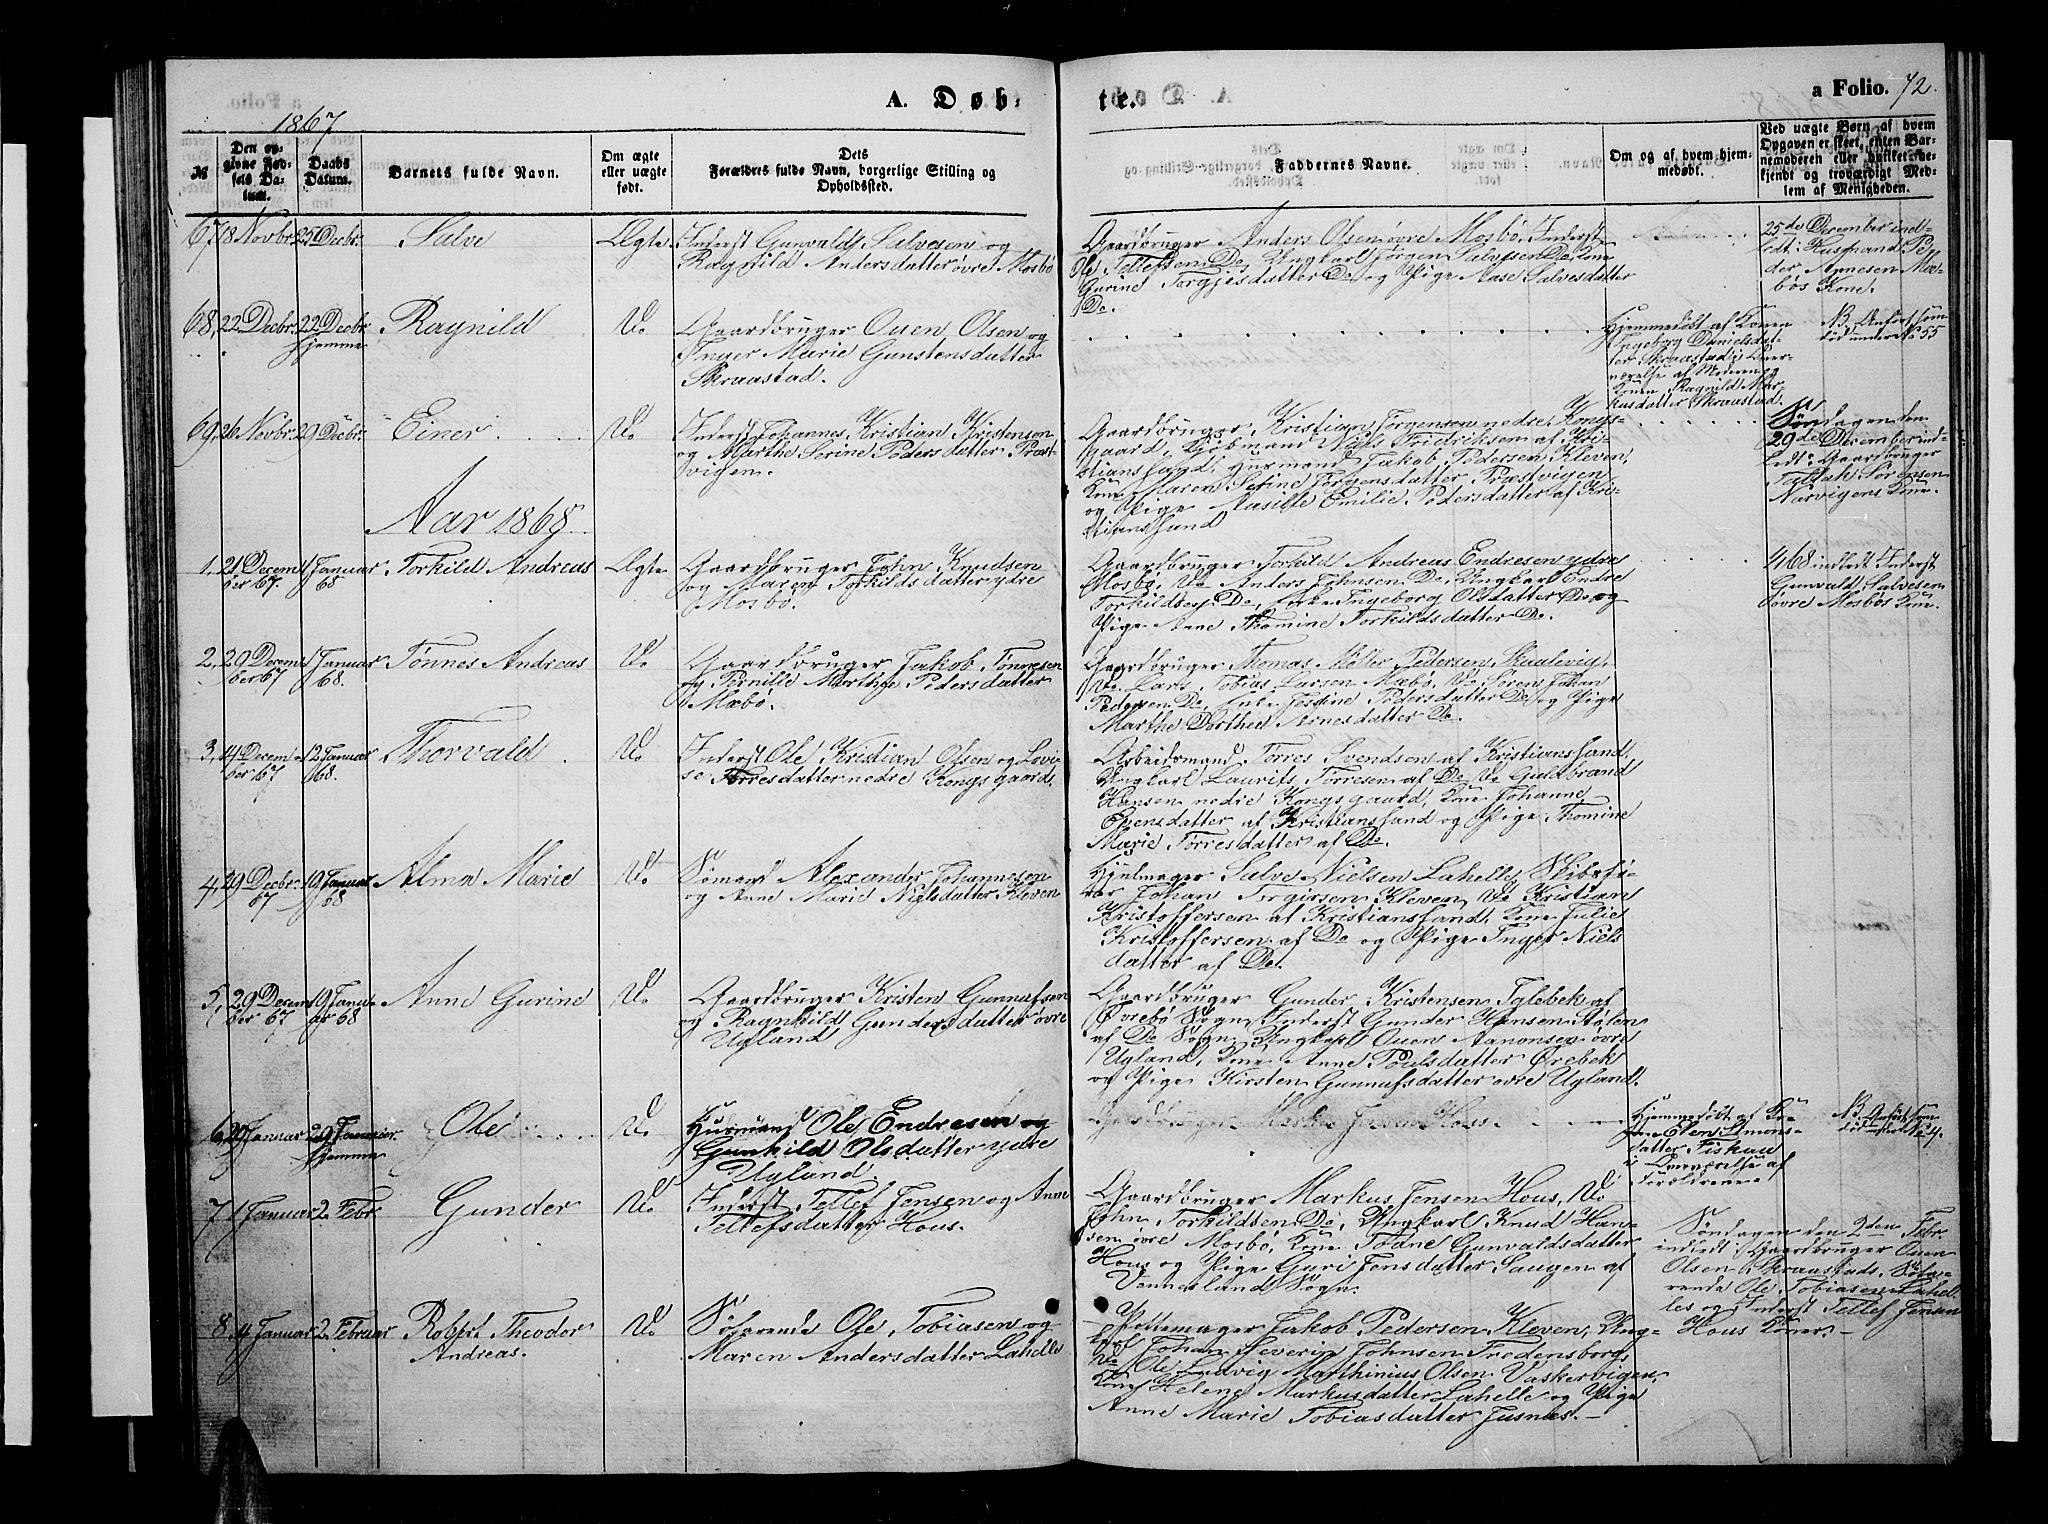 A. Døb-
te.
a Folio. 72.
1867
№
Den op-
givne Fød-
sels Da-
tum.
Daabs
Datum.
Barnets fulde Navn.
Om ægte
eller uægte
født.
Dets
Forældres fulde Navn, borgerlige Stilling og
Opholdssted.
Faddernes Navne.
Om og af hvem hjem-
medøbt.
Ved uægte Børn af hvem
Opgaven er skeet, enten Bar-
nemoderen eller hvilket be-
kjendt og troværdigt Med-
lem af Menigheden.
67, 18 Novbr. 25 Decbr. Salve Ægte
Inderst Gunvald Salvesen og
Ragnild Andersdatter øvre Mosbø
Gaardbruger Anders Olsen øvre Mosbø, Inderst
Ole Tellefsen Do, Ungkarl Jørgen Salvesen Do, Kone
Gurine Torgjesdatter Do og Pige Aase Salvesdatter
Do.
25de December ind-
ledt: Husmand Pe-
der Arnesen Mos-
bøs Kone.
68, 22 Decbr. 22 Decbr Ragnild Do
hjemme
Gaardbruger Ouen Olsen og
Inger Marie Gunstensdatter
Skraastad.
Hjemmedøbt af Konen
Ingeborg Danielsdat-
ter Skraastad i Over-
værelse af Moderen og
Konen Ragnild Mar-
kusdatter Skraastad.
NB. Anført som
død under No 55
69, 26 Novbr. 29 Decbr. Einer Do
Inderst Johannes Kristian Kristensen
og Marthe Serine Pedersdatter Præst-
vigen.
Gaardbruger Kristian Jørgensen nedre Kongs-
gaard, Kjøbmand Niels Fridriksen af Kri-
stianssand, Husmand Jakob Pedersen Kleven,
Kone Maren Serine Jørgensdatter Præstvigen
og Pige Emilie Pedersdatter af Kri-
stianssand
Søndagen den
29de December ind-
ledt: Gaardbruger
Tallak Sørensen
Narvigens Kone.
Aar 1868
1, 21 Decem- 1 Januar Torkild Andreas Ægte
ber 67. 68
Gaardbruger John Knudsen
og Maren Torkildsdatter ydre
Mosbø.
Gaardbruger Torkild Andreas Endresen ydre
Mosbø, Do Anders Johnsen Do, Ungkarl Endre
Torkildsen Do, Enke Ingeborg Olsdatter Do og
Pige Anne Thomine Torkildsdatter Do.
4/1 68 indledt Inderst
Gunvald Salvesen
øvre Mosbøs Kone.
2, 29 Decem- 1 Januar Tønnes Andreas Do
ber 67 68.
Gaardbruger Jakob Tønnesen
og Pernille Marthe Pedersdatter
Mæbø.
Gaardbruger Thomas Møller Pedersen Skaalevig,
Do Lars Tobias Larsen Mæbø, Do Søren Johan
Pedersen Do, Enke Jessine Pedersdatter Do og Pige
Marthe Dorthea Arnesdatter Do.
3, 4 Decem- 12 Januar Thorvald Do
ber 67 68.
Inderst Ole Kristian Olsen og Lovi-
se Torresdatter nedre Kongsgaard.
Arbeidsmand Torres Svendsen af Kristianssand
Ungkarl Laurits Torresen af Do, Do Guldbrand
Hansen nedre Kongsgaard, Kone Johanne
Evensdatter af Kristianssand og Pige Thomine
Marie Torresdatter af Do.
4, 29 Decbr. 19 Januar Alma Marie Do
67 68
Sømand Alexander Johannesen
og Anne Marie Nielsdatter Kleven
Hjulmager Salve Nielsen Lahelle, Skibsfø-
rer Johan Torgirsen Kleven, Do Kristian
Kristoffersen af Kristianssand, Kone Julie
Kristoffersen af Do og Pige Inger Niels
datter af Do.
5, 29 Decem- 19 Janu- Anne Gurine Do
ber 67 ar 68
Gaardbruger Kristen Gunnufsen
og Ragnhild Gundersdatter øvre
Ugland
Gaardbruger Gunder Kristensen Iglebek af
Øvrebø Sogn, Inderst Gunder Hansen Stølen
af Do Sogn, Ungkarl Ouen Aanonsen øvre
Ugland, Kone Anne Poulsdatter Ørebek
og Pige Kirsten Gunnufsdatter øvre Ugland.
6, 29 Januar 29 Januar Ole Do
hjemme
Husmand Ole Endresen og
Gunhild Olsdatter ydre
Ugland
Gaardbruger Markus Jensen Hous.
Hjemmedøbt af Ko-
nen Elen Simons-
datter Fiskaa
i Overværelse af
Forældrene
NB. Anført som
død under No 4.
7, 1 Januar 2 Febr. Gunder Do
Inderst Tellef Jensen og Anne
Tellefsdatter Hous.
Gaardbruger Markus Jensen Hous, Do
John Torkildsen Do, Ungkarl Knud Han-
sen øvre Mosbø, Kone Todne Gunvaldsdatter
Hous og Pige Guri Jensdatter Saugen af
Vennesland Sogn.
Søndagen den 2den Febr.
indledt: Gaardbruger Ouen
Olsen Skraastads, Søfa-
rende Ole Tobiasen Lahel-
les og Inderst Tellef Jensen
Hous Koner.
8, 4 Januar 2 Februar Robert Theodor Do
Andreas.
Søfarende Ole Tobiasen og
Maren Andersdatter Lahelle
Pottemager Jakob Pedersen Kleven, Ung-
karl Johan Severin Johnsen Fredensborg,
Do Ole Ludvig Matthinius Olsen Vaskervigen,
Kone Helene Markusdatter Lahelle og Pige
Anne Marie Tobiasdatter Jusnes.